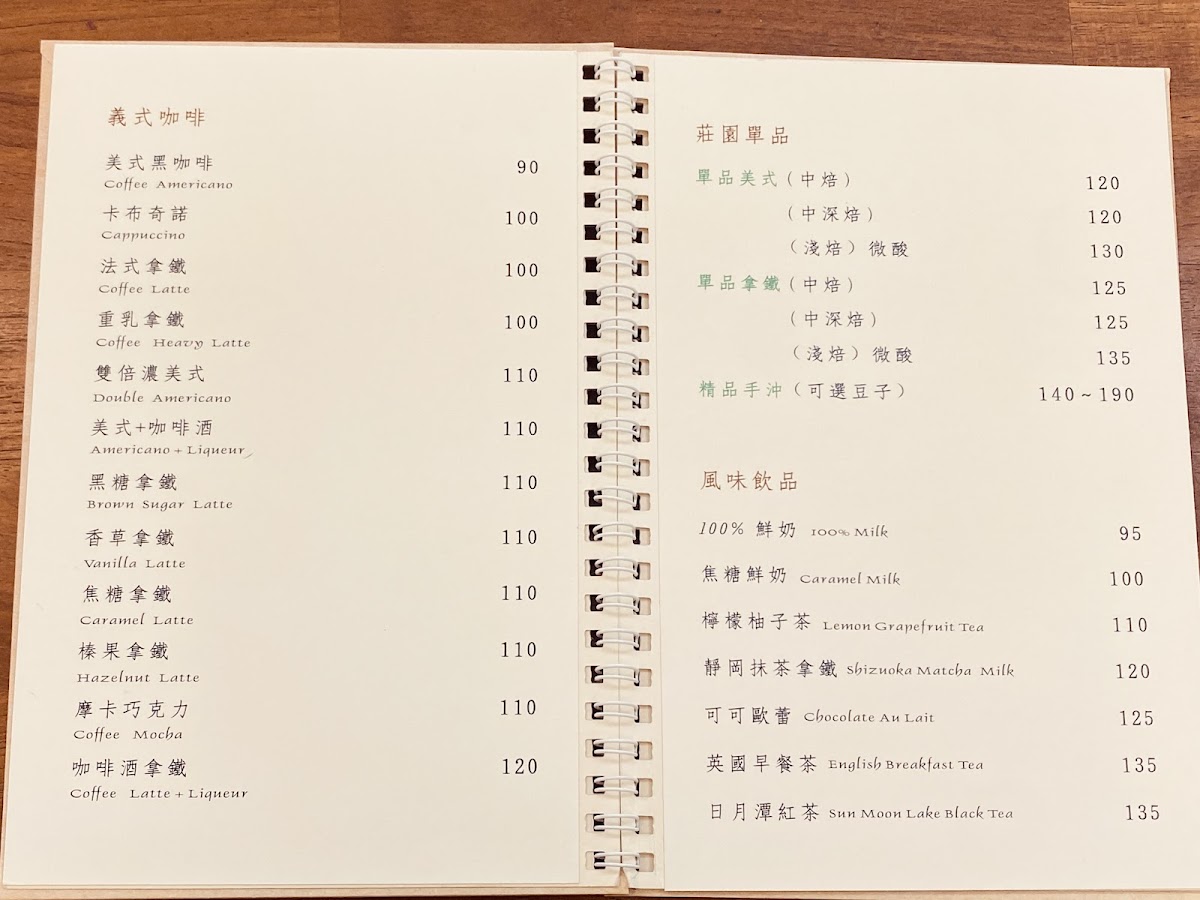 義式咖啡
美式黑咖啡 90
Coffee Americano
卡布奇諾 100
Cappuccino
法式拿鐵 100
Coffee Latte
重乳拿鐵 100
Coffee Heavy Latte
雙倍濃美式 110
Double Americano
美式+咖啡酒 110
Americano + Liqueur
黑糖拿鐵 110
Brown Sugar Latte
香草拿鐵 110
Vanilla Latte
焦糖拿鐵 110
Caramel Latte
榛果拿鐵 110
Hazelnut Latte
摩卡巧克力 110
Coffee Mocha
咖啡酒拿鐵 120
Coffee Latte + Liqueur
莊園單品
單品美式(中焙) 120
(中深焙) 120
(淺焙) 微酸 130
單品拿鐵(中焙) 125
(中深焙) 125
(淺焙) 微酸 135
精品手沖(可選豆子) 140~190
風味飲品
100% 鮮奶 100% Milk 95
焦糖鮮奶 Caramel Milk 100
檸檬柚子茶 Lemon Grapefruit Tea 110
靜岡抹茶拿鐵 Shizuoka Matcha Milk 120
可可歐蕾 Chocolate Au Lait 125
英國早餐茶 English Breakfast Tea 135
日月潭紅茶 Sun Moon Lake Black Tea 135